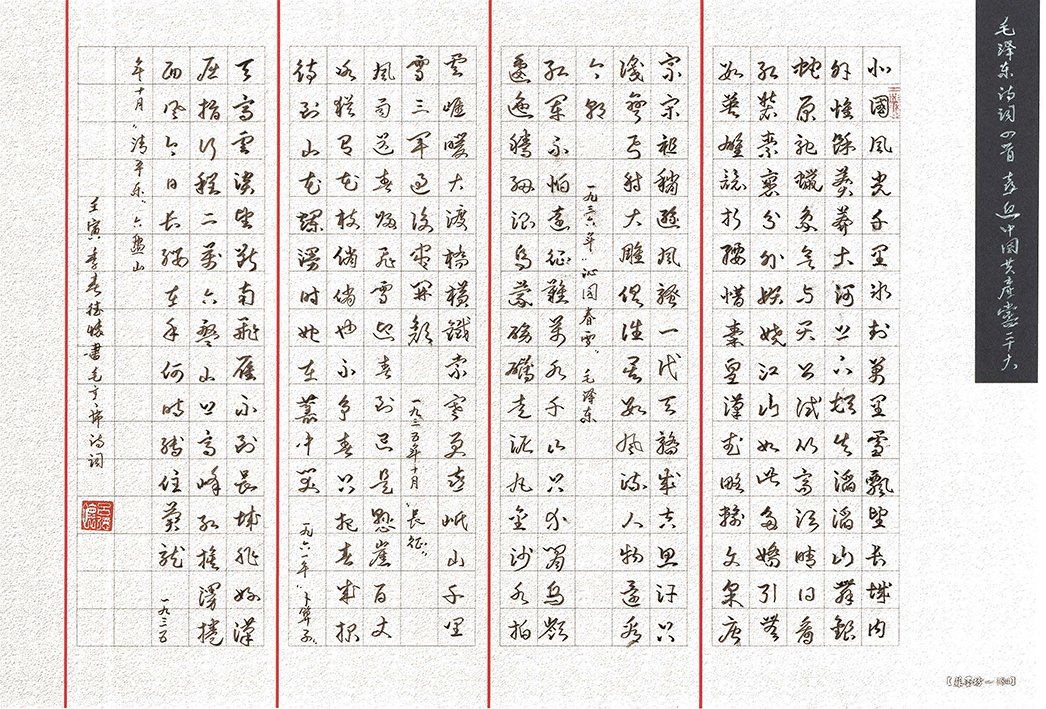 毛泽东诗词四首 喜迎中国共産党二十大
北國风光千里冰封万里雪飘望长城内
外惟馀莽莽大河上下顿失滔滔山舞银
蛇原驰蜡象欲与天公试比高须晴日看
红装素裹分外妖娆江山如此多娇引无
数英雄竞折腰惜秦皇汉武略输文采唐
宗宋祖稍逊风骚一代天骄成吉思汗只
识弯弓射大雕俱往矣数风流人物还看
今朝 一九三六年“沁园春雪”毛泽东
红军不怕远征难万水千山只等闲五岭
逶迤腾细浪乌蒙磅礴走泥丸金沙水拍
云崖暖大渡桥横铁索寒更喜岷山千里
雪三军过后尽开颜 一九三五年十月“长征”
风雨送春归飞雪迎春到已是悬崖百丈
冰犹有花枝俏俏也不争春只把春来报
待到山花烂漫时她在丛中笑 一九六一年“卜算子”
天高云淡望断南飞雁不到长城非好汉
屈指行程二万六盘山上高峰红旗漫卷
西风今日长缨在手何时缚住苍龙 一九三五
年十月“清平乐”六盘山
壬寅季春 书毛主席诗词